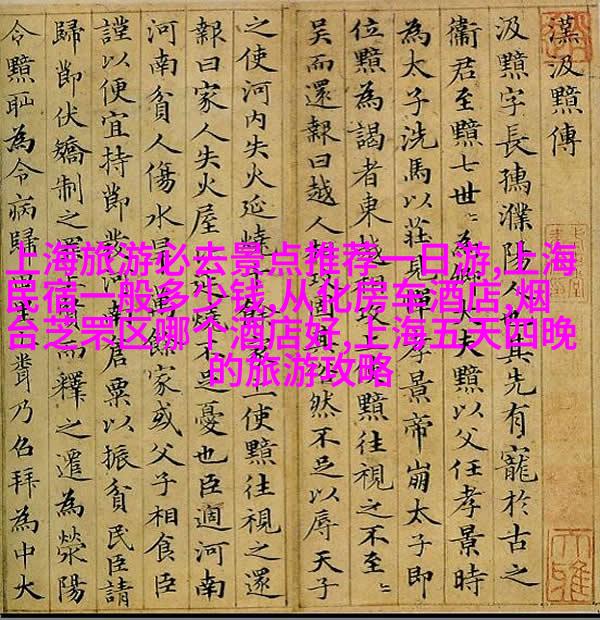 漢汲黯傳
汲黯字長孺濮陽人也其先有寵於古之
衞君至黯七世〻大夫黯以父任孝景時
為太子洗馬以莊見憚孝景帝崩太子即
位黯為謁者東越相攻上使黯往視之不至〻
吳而還報曰越人相攻固其然不足以辱天子
之使河內失火延燒上使黯往視之還
報曰家人失火屋燒不足憂也臣過河南
河南貧人傷水旱萬餘家或父子相食臣
謹以便宜持節發河南倉粟以振貧民臣請
歸節伏矯制之罪而釋之遷為滎陽
令黯恥為令病歸乃召拜為中大
上海旅游必去景点推荐一日游,上海
民宿一般多少钱,从化房车酒店,烟
台芝罘区哪个酒店好,上海五天四晚
的旅游攻略